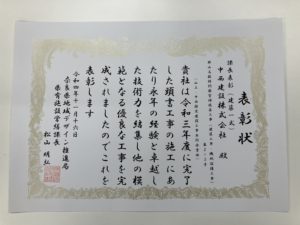 表彰状
課長表彰(建築一式)
中西建設株式会社 殿
貴社は令和三年度に完了
した頭書工事の施工にあ
たり永年の経験と卓越し
た技術力を結集し他の模
範となる優良な工事を完
成されましたのでこれを
表彰します
令和四年十一月十六日
奈良県地域デザイン推進局
県有施設営繕課長
松山 明弘